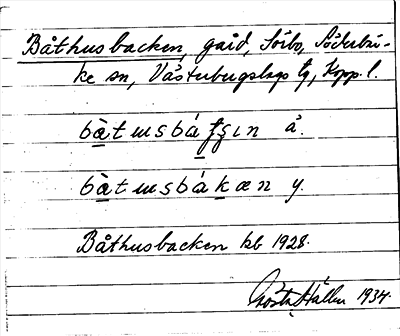 Båthusbacken, gård, Sörbo, Söderbär-
ke sn, Västerbergslags tg, Kopp. l.
bàtɯsbáʈʂɩn å.
bàtɯsbákæn y.
Båthusbacken kb 1928.
Gösta Hallen 1934.